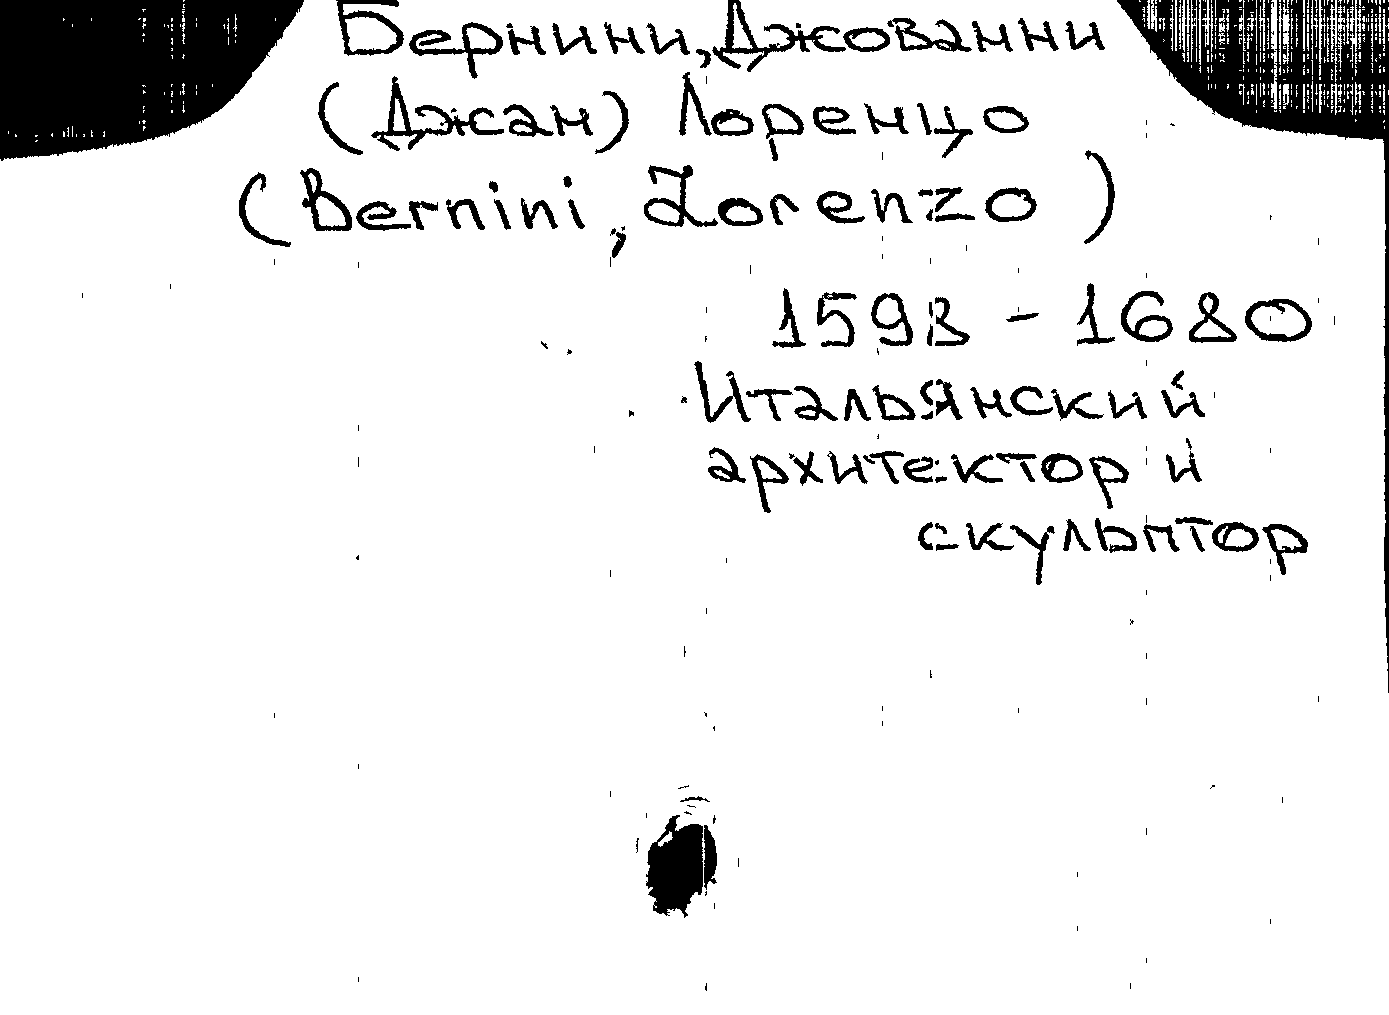 Бернини, Джованни
(Джан) Лоренцо
(Bernini, Lorenzo)
1598 - 1680
Итальянский
архитектор и
скульптор